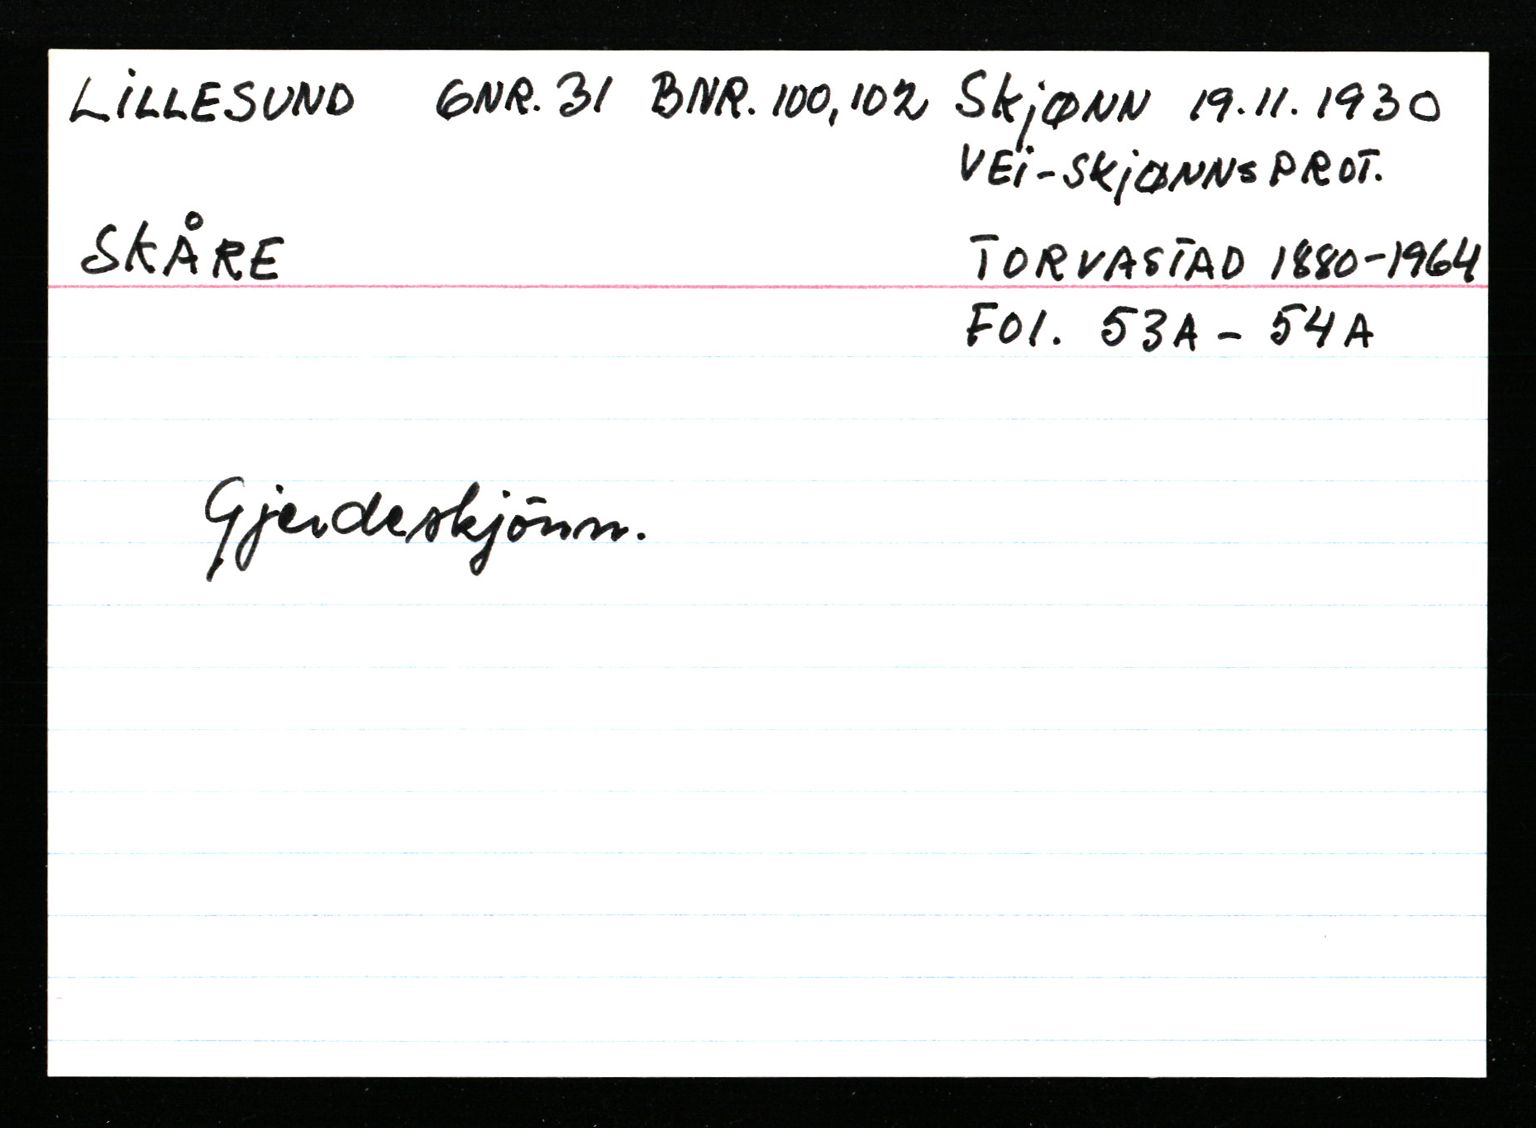 LILLESUND GNR. 31 BNR. 100,102 SKJØNN 19.11.1930
VEI-SKJØNNSPROT.
SKÅRE TORVASTAD 1880-1964
FOL. 53A - 54A
Gjerdeskjönn.